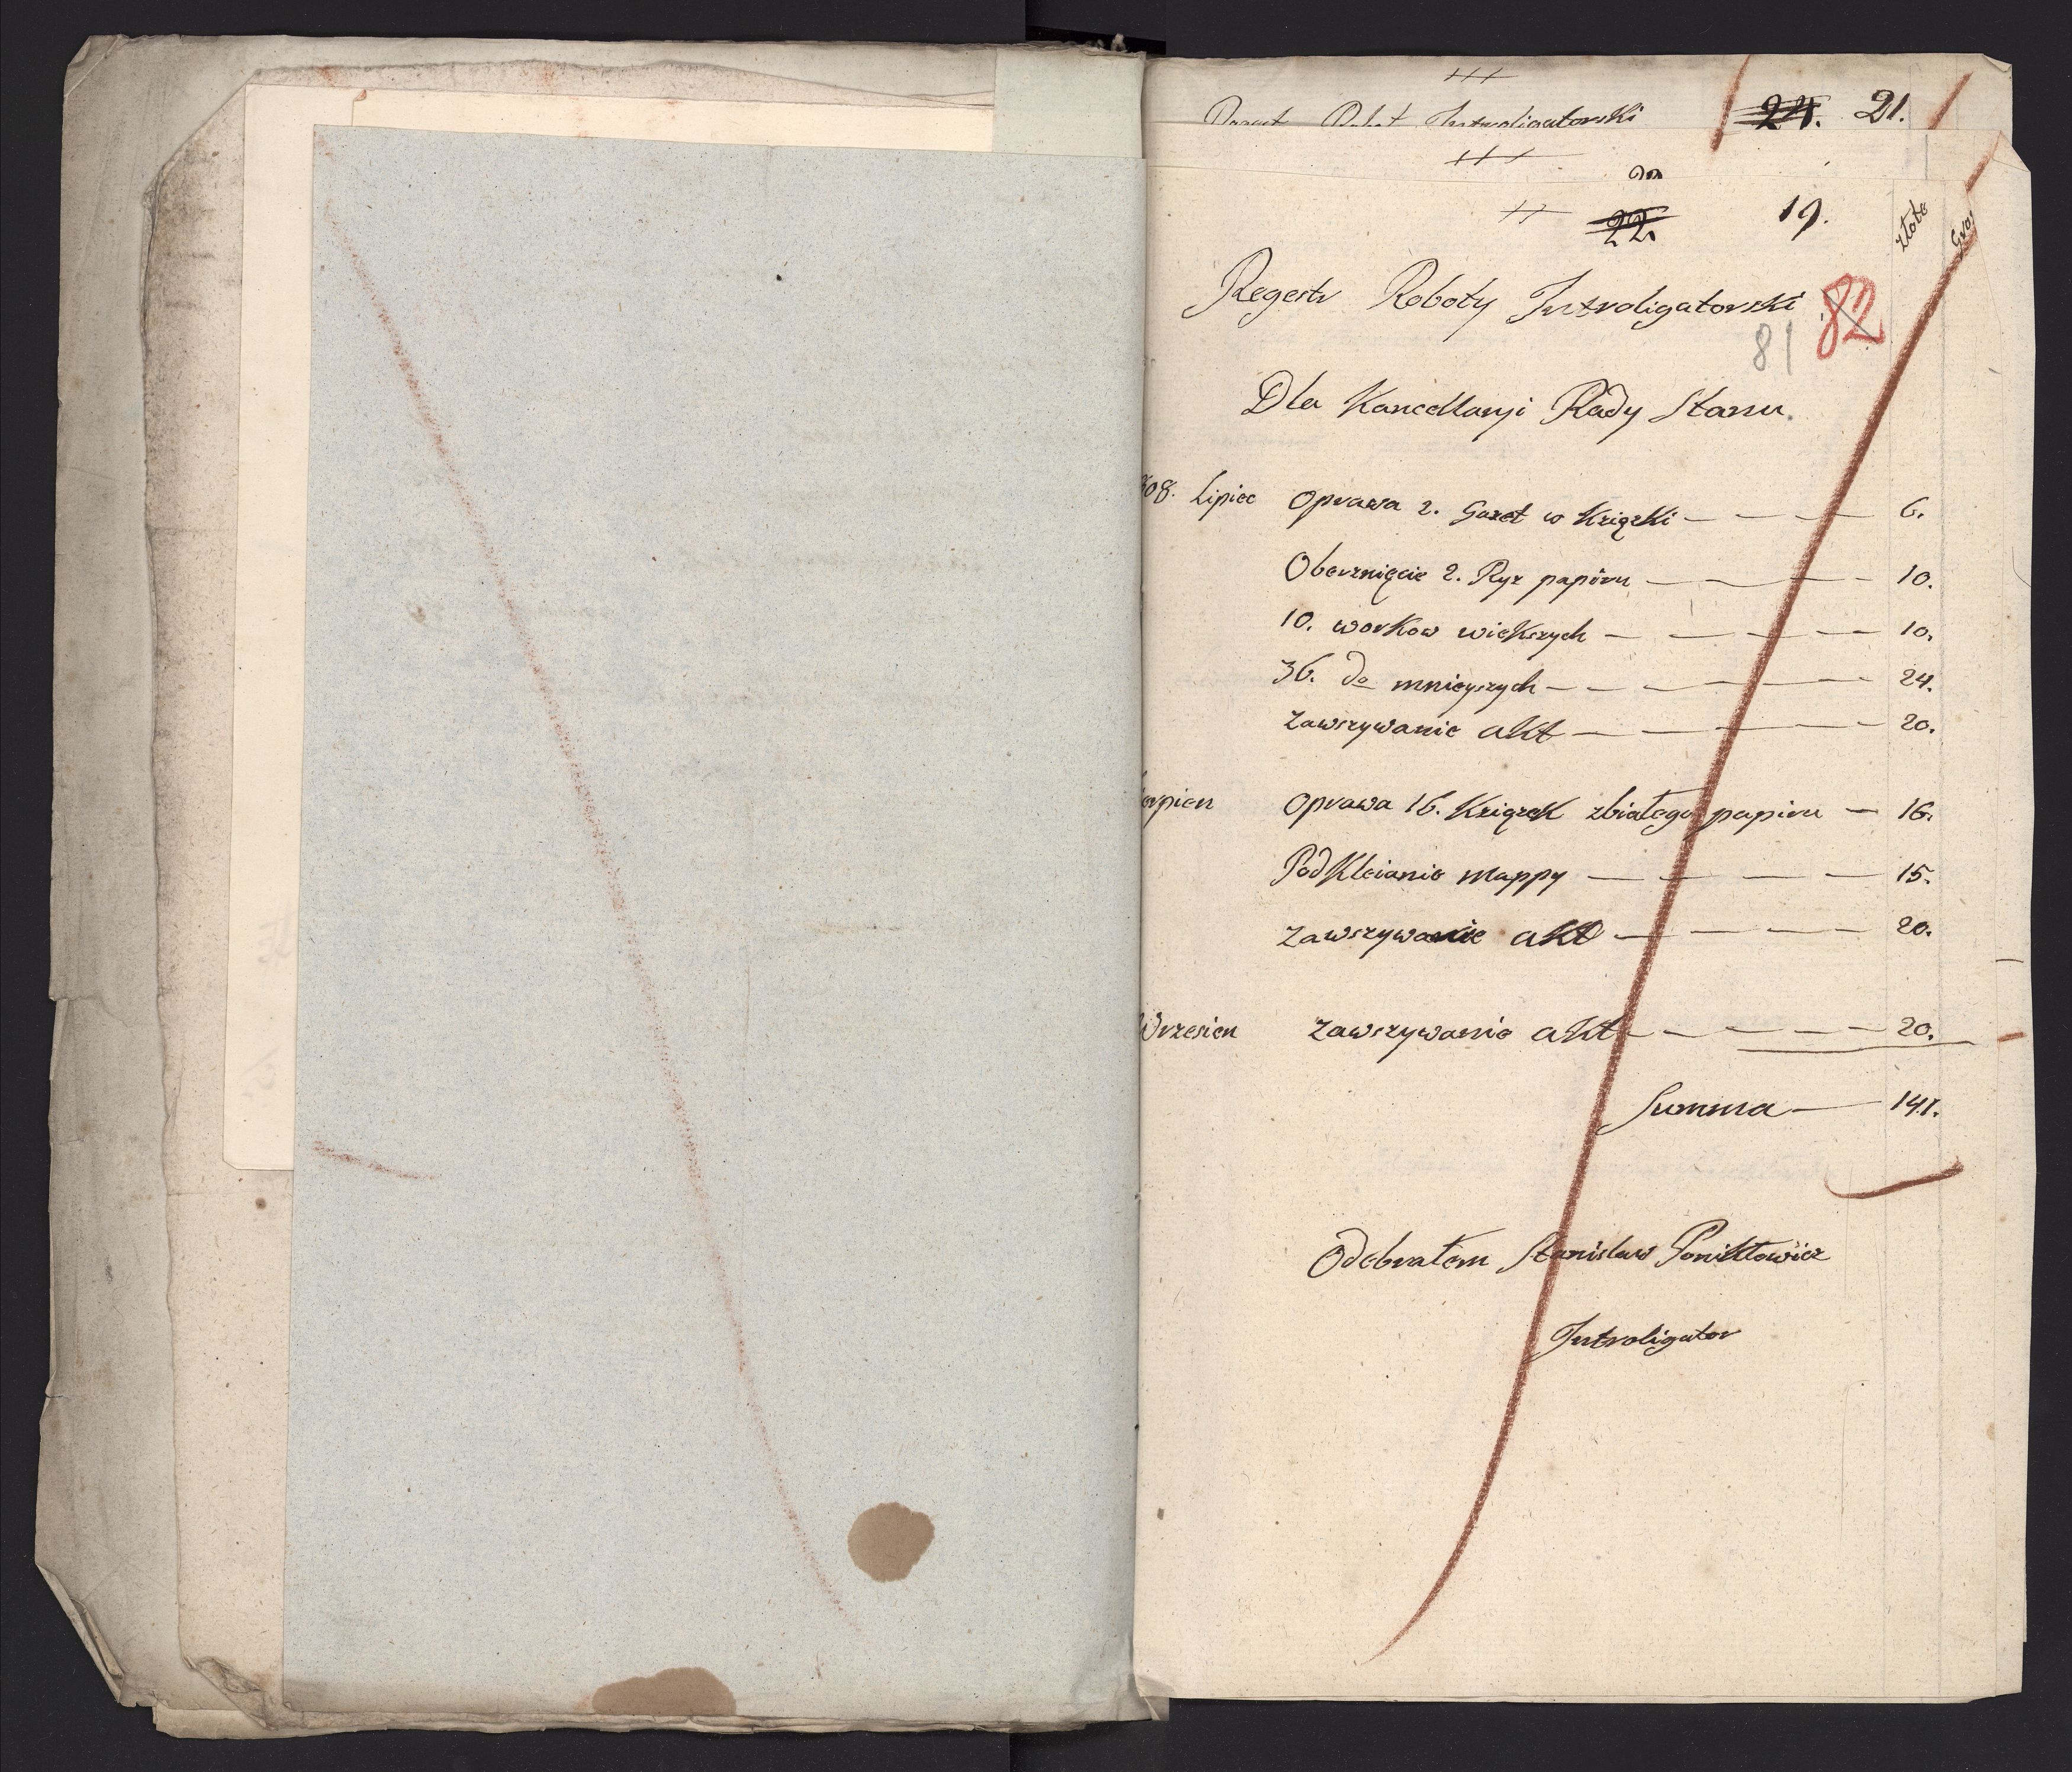 Introligatorski 24. 21.
22. 19. złote Gro.
Regestr Roboty Introligatorski 82
81
Dla Kancellaryi Rady Stanu.
808. Lipiec Oprawa 2. Gazet w Książki 6.
Oberznięcie 2. Ryz papiru 10.
10. workow wiekszych 10.
36. do mnieyszych 24.
zawszywanie akt 20.
erpien Oprawa 16. Książek zbiałego papiru 16.
PodKleianie mappy 15.
zawszywanie akt 20.
Wrzesien zawszywanie akt 20.
Summa 141.
Odebrałem Stanisław Poniktowicz
Introligator